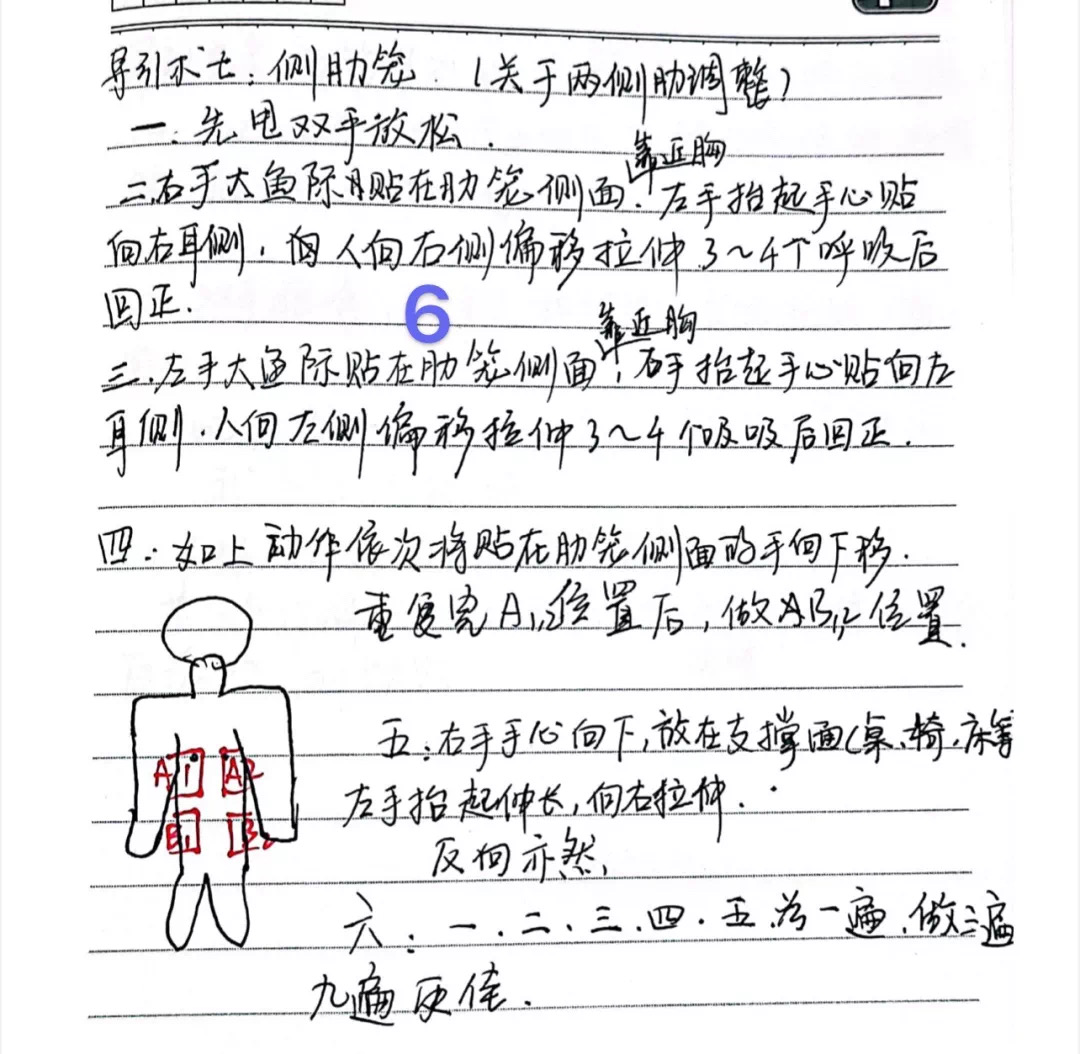 导引术七:侧肋笼.(关于两侧肋调整)
一.先甩双手放松.
靠近胸
二.右手大鱼际贴在肋笼侧面.左手抬起手心贴
向右耳侧,人向右侧偏移拉伸3~4个呼吸后
回正.
6
靠近胸
三.左手大鱼际贴在肋笼侧面,右手抬起手心贴向左
耳侧.人向左侧偏移拉伸3~4个吸吸后回正.
四:如上动作依次将贴在肋笼侧面的手向下移.
重复完A1,2位置后,做AB1,2位置.
五:右手手心向下,放在支撑面(桌、椅、床等
A1 A2
左手抬起伸长,向右拉伸.
B1 B2
反向亦然,
六.一.二.三.四.五.为一遍.做三遍
九遍更佳.